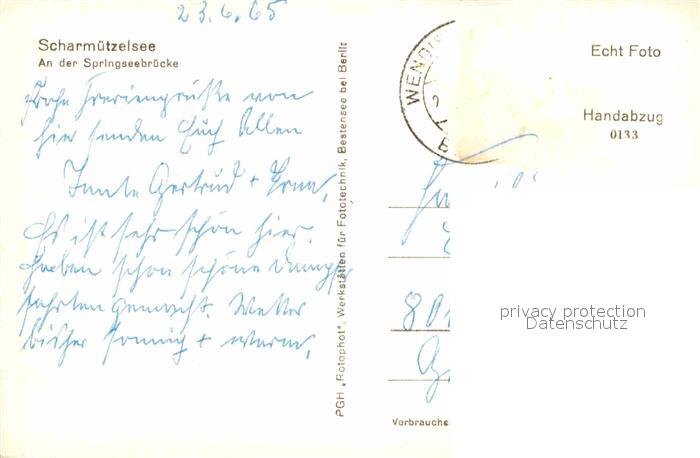 23.6.65
Scharmützelsee
An der Springseebrücke
Frohe Feriengrüße von
hier senden Euch Allen
Tante Gertrud +
Es ist sehr schön hier.
Haben schon schöne Dampfer
fahrten gemacht. Wetter
bisher sonnig + warm.
PGH „Rotophot", Werkstätten für Fototechnik, Bestensee bei Berlin
WENDIS
Echt Foto
Handabzug
0133
privacy protection
Datenschutz
Verbrauche